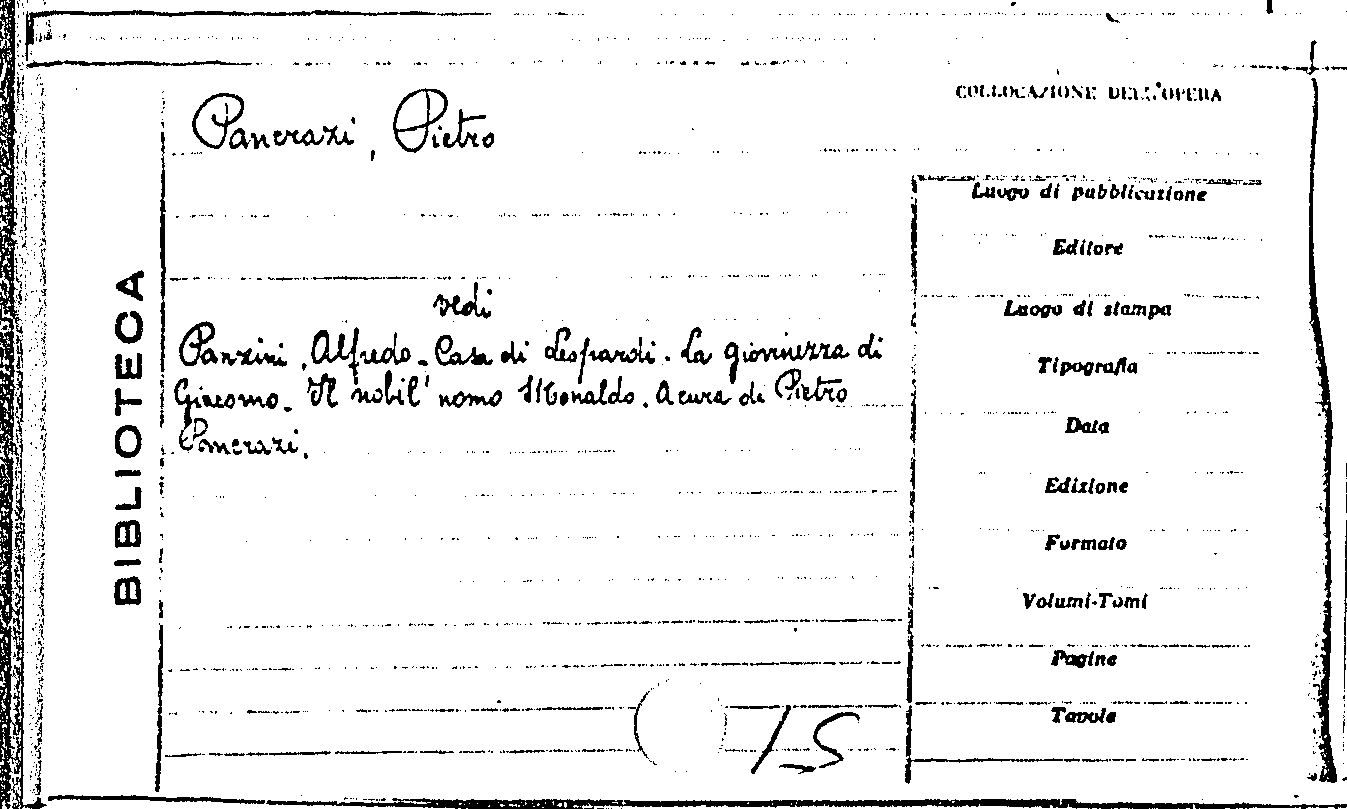 COLLOCAZIONE DELL'OPERA
Pancrazi, Pietro
Luogo di pubblicazione
Editore
vedi
Luogo di stampa
Panzini, Alfredo - Casa di Leopardi. La giovinezza di
Tipografia
Giacomo. Il nobil' uomo Monaldo. A cura di Pietro
Pancrazi.
Data
Edizione
Formato
Volumi-Tomi
Pagine
Tavole
BIBLIOTECA